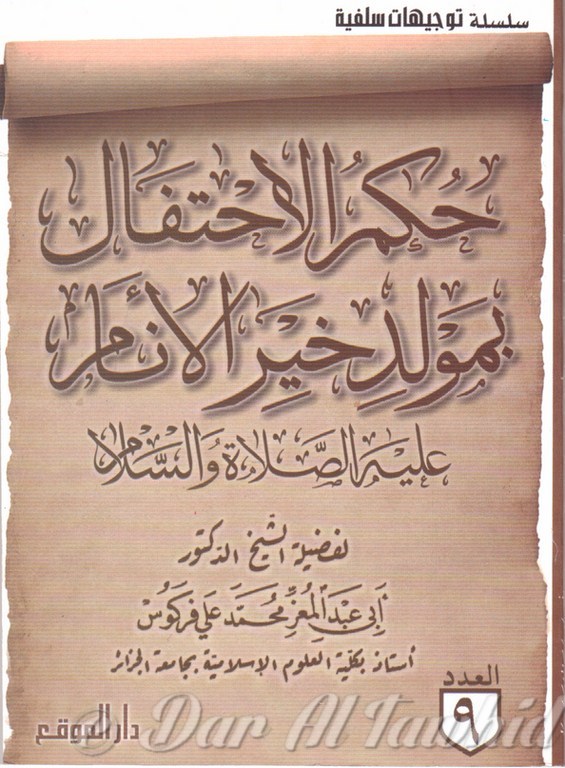 سلسلة توجيهات سلفية
حُكمُ الاحتفال
بمَولدِ خيرِ الأنام
عليه الصَّلاة والسَّلام
لفضيلة الشيخ الدكتور
أبي عبد المُعزِّ محمَّد علي فركوس
أستاذ بكلية العلوم الإسلامية بجامعة الجزائر
العدد
٩
دار الموقع
© Dar Al Tawhid